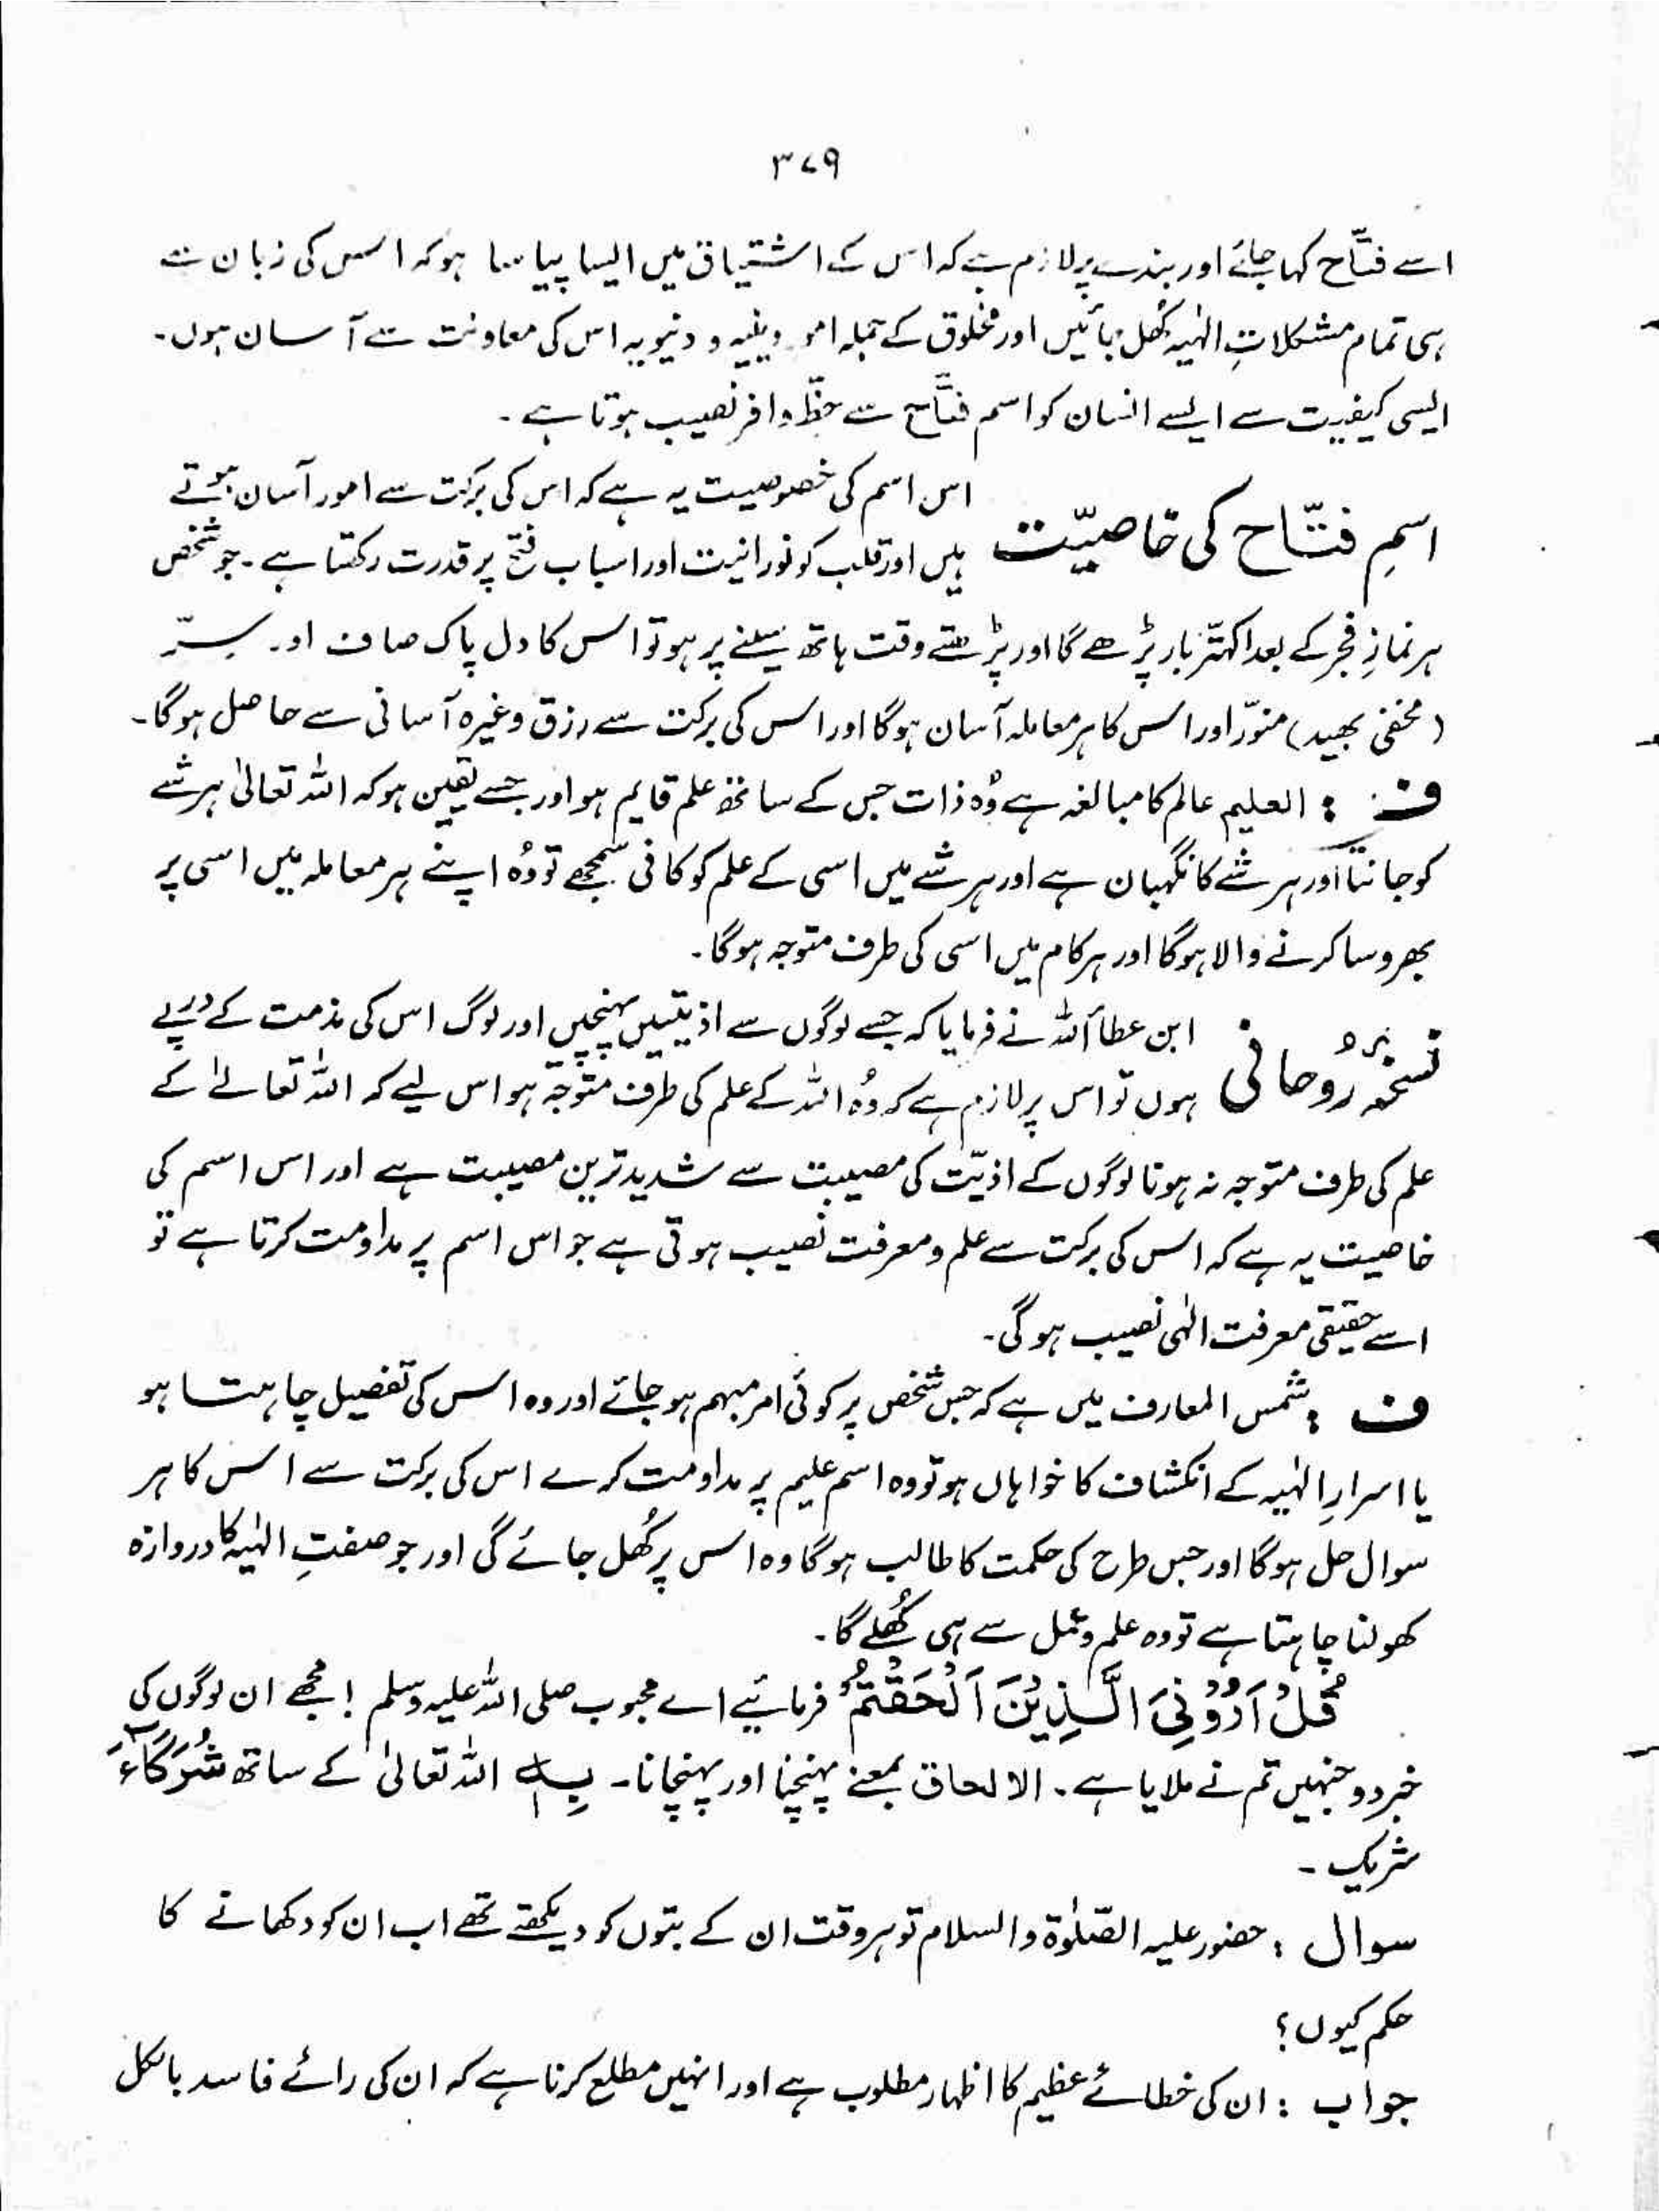 ۳۷۹
اسے فتّاح کہا جائے اور بندے پر لازم ہے کہ اس کے اشتیاق میں ایسا پیاسا ہو کہ اس کی زبان سے
ہی تمام مشکلاتِ الٰہیہ کُھل جائیں اور مخلوق کے جملہ امور دینیہ و دنیویہ اس کی معاونت سے آسان ہوں۔
ایسی کیفیت سے ایسے انسان کو اسم فتَّاح سے حظِّ وافر نصیب ہوتا ہے۔
اسمِ فتّاح کی خاصیّت
اس اسم کی خصوصیت یہ ہے کہ اس کی برکت سے امور آسان ہوتے
ہیں اور قلب کو نورانیت اور اسباب فتح پر قدرت رکھتا ہے۔ جو شخص
ہر نمازِ فجر کے بعد اکہتّر بار پڑھے گا اور پڑھتے وقت ہاتھ سینے پر ہو تو اس کا دل پاک صاف اور سِرّ
(مخفی بھید) منوّر اور اس کا ہر معاملہ آسان ہوگا اور اس کی برکت سے رزق وغیرہ آسانی سے حاصل ہوگا۔
ف : العلیم عالم کا مبالغہ ہے وُہ ذات جس کے ساتھ علم قایم ہو اور جسے یقین ہو کہ اللہ تعالیٰ ہر شے
کو جانتا اور ہر شے کا نگہبان ہے اور ہر شے میں اسی کے علم کو کافی سمجھے تو وُہ اپنے ہر معاملہ میں اسی پر
بھروسا کرنے والا ہوگا اور ہر کام میں اسی کی طرف متوجہ ہوگا۔
نسخہ رُوحانی
ابن عطأ اللہ نے فرمایا کہ جسے لوگوں سے اذیتیں پہنچیں اور لوگ اس کی مذمت کے درپے
ہوں تو اس پر لازم ہے کہ وُہ اللہ کے علم کی طرف متوجّہ ہو اس لیے کہ اللہ تعالےٰ کے
علم کی طرف متوجہ نہ ہونا لوگوں کے اذیّت کی مصیبت سے شدید ترین مصیبت ہے اور اس اسم کی
خاصیت یہ ہے کہ اس کی برکت سے علم و معرفت نصیب ہوتی ہے جو اس اسم پر مداومت کرتا ہے تو
اسے حقیقی معرفت الٰہی نصیب ہوگی۔
ف : شمس المعارف میں ہے کہ جس شخص پر کوئی امر مبہم ہو جائے اور وہ اس کی تفصیل چاہتا ہو
یا اسرارِ الٰہیہ کے انکشاف کا خواہاں ہو تو وہ اسم علیم پر مداومت کرے اس کی برکت سے اس کا ہر
سوال حل ہوگا اور جس طرح کی حکمت کا طالب ہوگا وہ اس پر کُھل جائے گی اور جو صفتِ الٰہیہ کا دروازہ
کھولنا چاہتا ہے تو وہ علم و عمل سے ہی کُھلے گا۔
قُلْ اَرُوْنِیَ الَّذِیْنَ اَلْحَقْتُمْ فرمائیے اے محبوب صلی اللہ علیہ وسلم! مجھے ان لوگوں کی
خبر دو جنہیں تم نے ملایا ہے۔ الالحاق بمعنے پہنچنا اور پہنچانا۔ بِہٖ اللہ تعالیٰ کے ساتھ شُرَکَآءَ
شریک۔
سوال : حضور علیہ الصّلوٰۃ والسلام تو ہر وقت ان کے بتوں کو دیکھتے تھے اب ان کو دکھانے کا
حکم کیوں؟
جواب : ان کی خطائے عظیم کا اظہار مطلوب ہے اور انہیں مطلع کرنا ہے کہ ان کی رائے فاسد بالکل